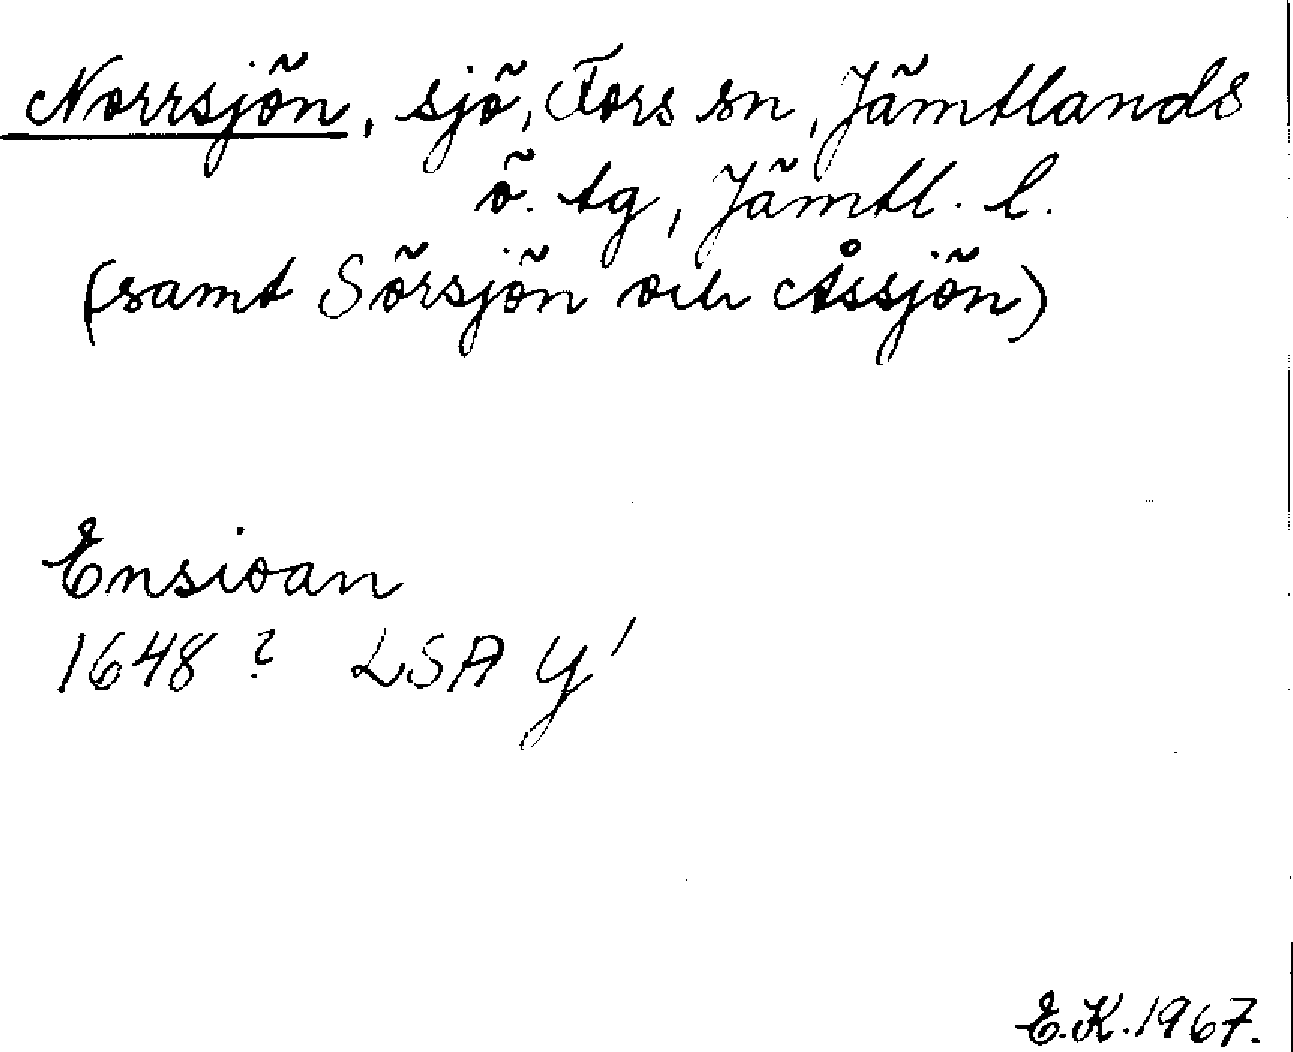 Norrsjön, sjö, Fors sn, Jämtlands
ö. tg, Jämtl. l.
(samt Sörsjön och Åssjön)
Ensioan
1648? LSA Y'
E.K. 1967.